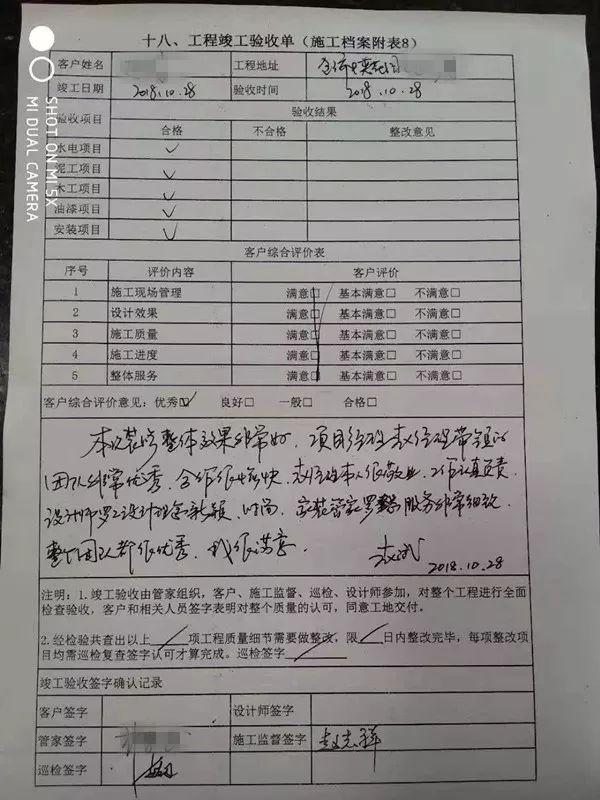 十八、工程竣工验收单（施工档案附表8）
客户姓名 工程地址
竣工日期 2018.10.28 验收时间 2018.10.28
验收项目 验收结果
合格 不合格 整改意见
水电项目
泥工项目
木工项目
油漆项目
安装项目
客户综合评价表
序号 评价内容 客户评价
1 施工现场管理 满意□ 基本满意□ 不满意□
2 设计效果 满意□ 基本满意□ 不满意□
3 施工质量 满意□ 基本满意□ 不满意□
4 施工进度 满意□ 基本满意□ 不满意□
5 整体服务 满意□ 基本满意□ 不满意□
客户综合评价意见：优秀☑ 良好□ 一般□ 合格□
本次装修整体效果非常好，项目经理赵经理带领的
团队非常优秀，合作很愉快，赵经理本人很敬业，工作认真负责，
设计师罗工设计理念新颖，时尚，家装管家罗 服务非常细致，
整个团队都很优秀，我很满意
2018.10.28
注明：1.竣工验收由管家组织，客户、施工监督、巡检、设计师参加，对整个工程进行全面
检查验收，客户和相关人员签字表明对整个质量的认可，同意工地交付。
2.经检验共查出以上 项工程质量细节需要做整改，限 日内整改完毕，每项整改项
目均需巡检复查签字认可才算完成。巡检签字
竣工验收签字确认记录
客户签字 设计师签字
管家签字 施工监督签字 赵志祥
巡检签字
SHOT ON MI 5X
MI DUAL CAMERA